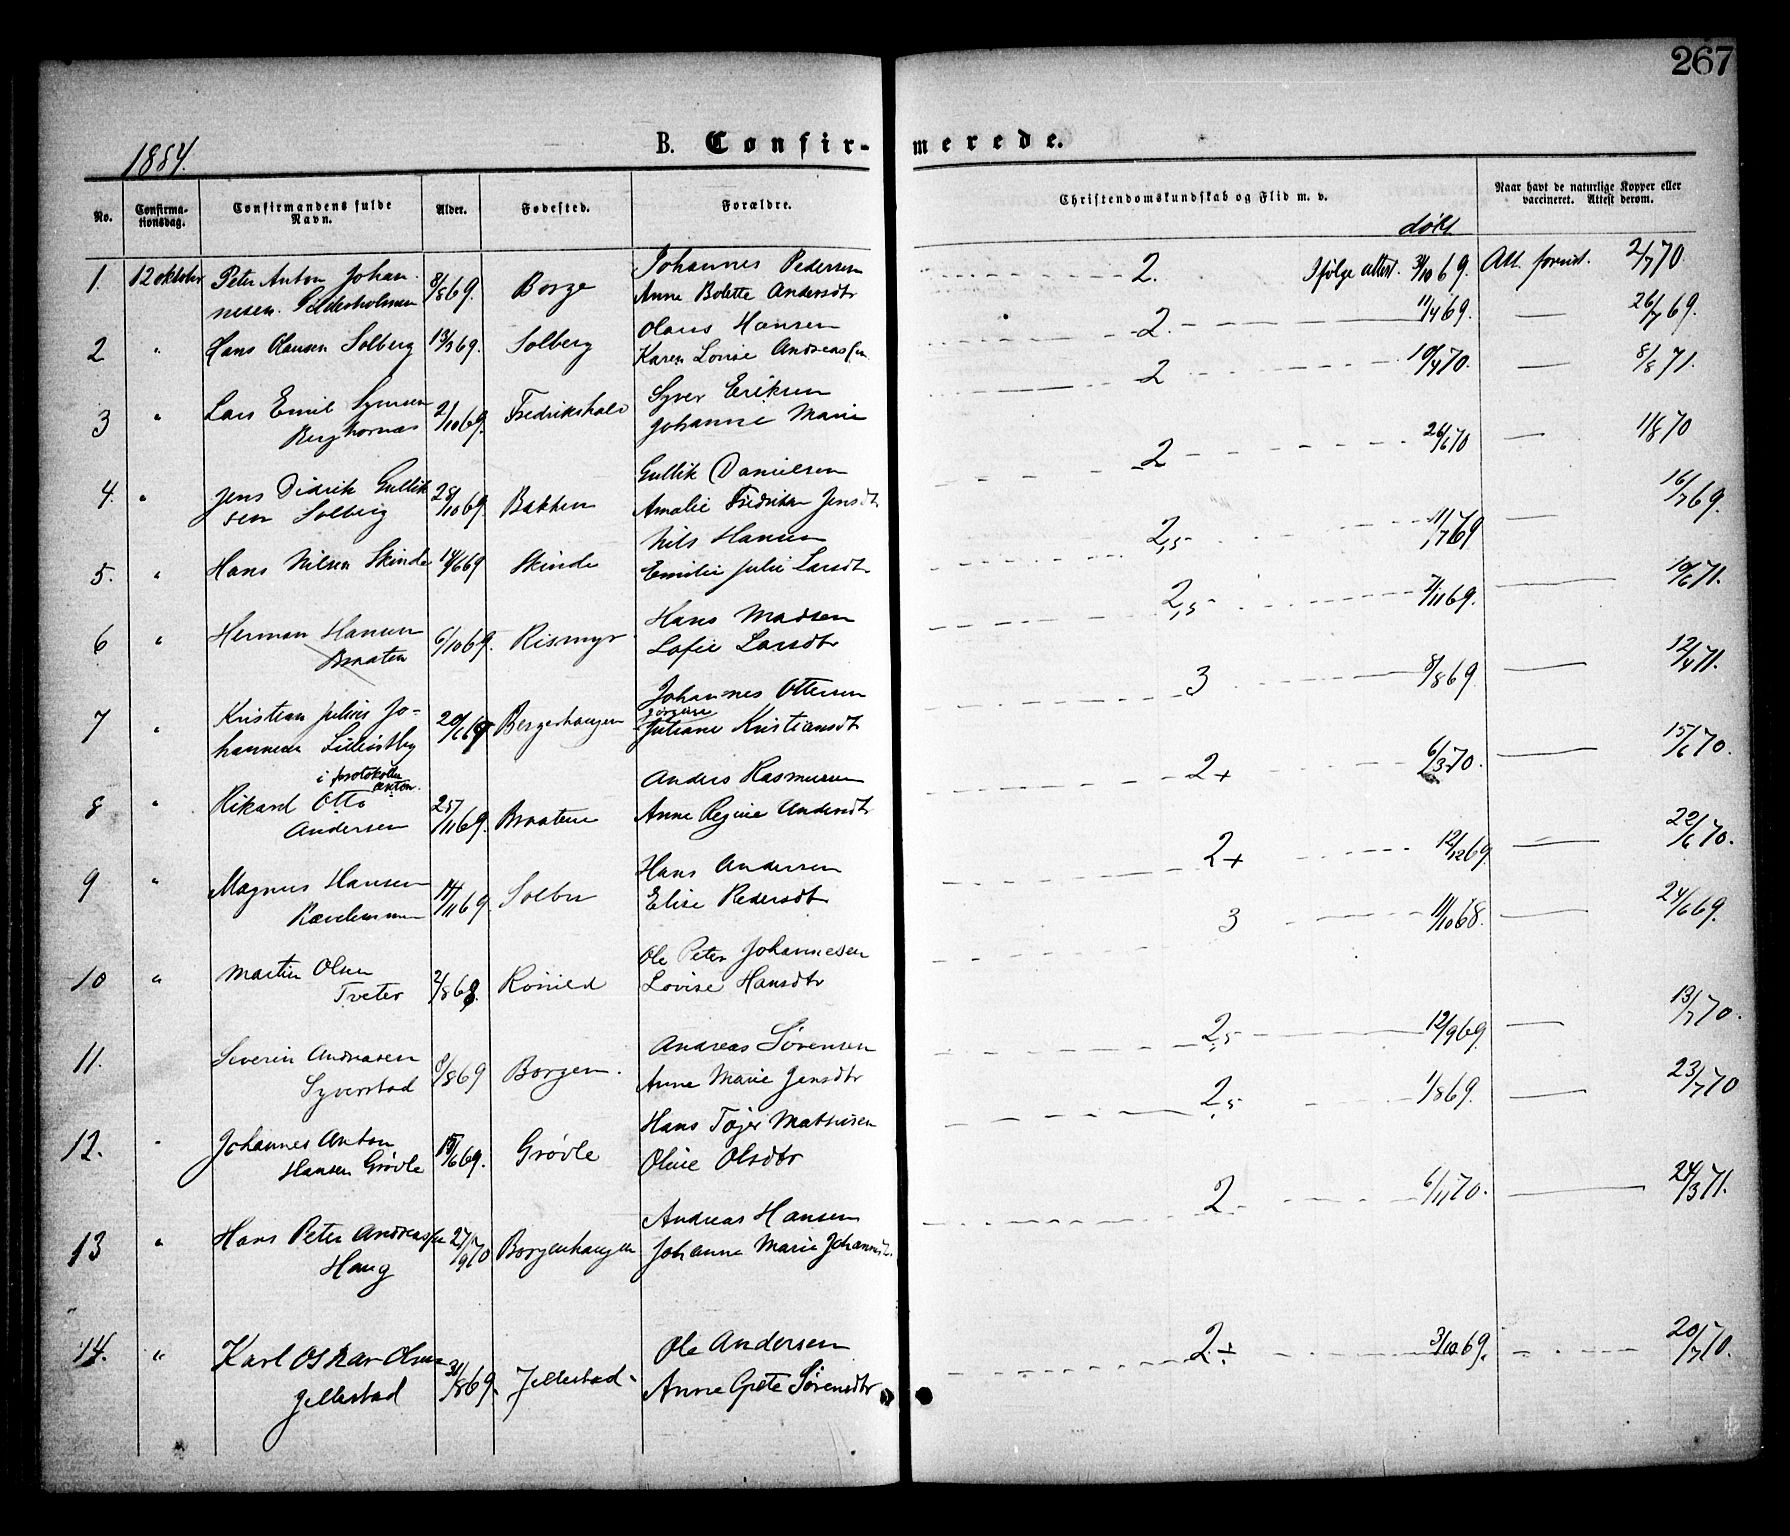 267
1884.
B. Confirmerede.
No.
Confirma-
tionsdag.
Confirmandens fulde
Navn.
Alder.
Fødested.
Forældre.
Christendomskundskab og Flid m. v.
Naar havt de naturlige Kopper eller
vaccineret. Attest derom.
døbt
1. 12 oktober Peter Anton Johan- 8/8 69. Borge Johannes Pedersen 2. Ifølge attest. 31/10 69. Att. forevist. 2/7 70
nesen. Anne Bolette Andersdtr
2 " Hans Olausen Solberg 13/3 69. Solberg Olaus Hansen 2. 11/4 69. — 26/7 69.
Karen Lovise Andreasen
3 " Lars Emil Syversen 2/10 69. Fredrikshald Syver Eriksen 2 10/4 70. — 8/8 71.
Berghornæs Johanne Marie
4. " Jens Didrik Gullik 28/10 69. Bakken Gullik Danielsen 2 26/6 70 — 1/8 70
sen Solberg Amalie Fredrikke Jensdtr
5. " Hans Nilsen Skinde 14/6 69 Skinde Nils Hansen 2,5 11/7 69 — 16/7 69.
Emilie Julie Larsdtr
6 " Herman Hansen 6/10 69. Rismyr Hans Madsen 2,5 7/11 69. — 19/6 71.
Braaten Sofie Larsdtr
7 " Kristian Julius Jo- 20/6 69 Borgerhaugen Johannes Ottersen 3 8/8 69. — 12/4 71.
hannesen Jørgine
Juliane Kristiansdtr
i protokollen
Anton.
8 " Rikard Otto 25/11 69. Braatene Anders Rasmussen 2+ 6/3 70. — 15/6 70.
Andersen Anne Regine Andersdtr
9 " Magnus Hansen 14/11 69. Hans Andersen 2+ 12/12 69. — 22/6 70.
Elise Pedersdtr
10 " Martin Olsen 2/8 68. Ole Peter Johannesen 3 11/10 68. — 24/6 69.
Tveter Lovise Hansdtr
11. Severin Andreasen 8/8 69 Borgen. Andreas Sørensen 2,5 12/9 69. — 13/7 70.
Syverstad Anne Marie Jensdtr
12. " Johannes Anton 15/6 69. Grøvle Hans Tøger Mathisen 2,5 1/8 69. — 23/7 70
Hansen Grøvle Oline Olsdtr
13 " Hans Peter Andreassen 27/9 70 Borgenhaugen Andreas Hansen 2 6/11 70. — 24/3 71.
Haug Johanne Marie Johannesdtr
14. " Karl Oskar Olsen 31/8 69. Jellestad Ole Andersen 2+ 3/10 69. — 20/7 70.
Jellestad Anne Grete Sørensdtr